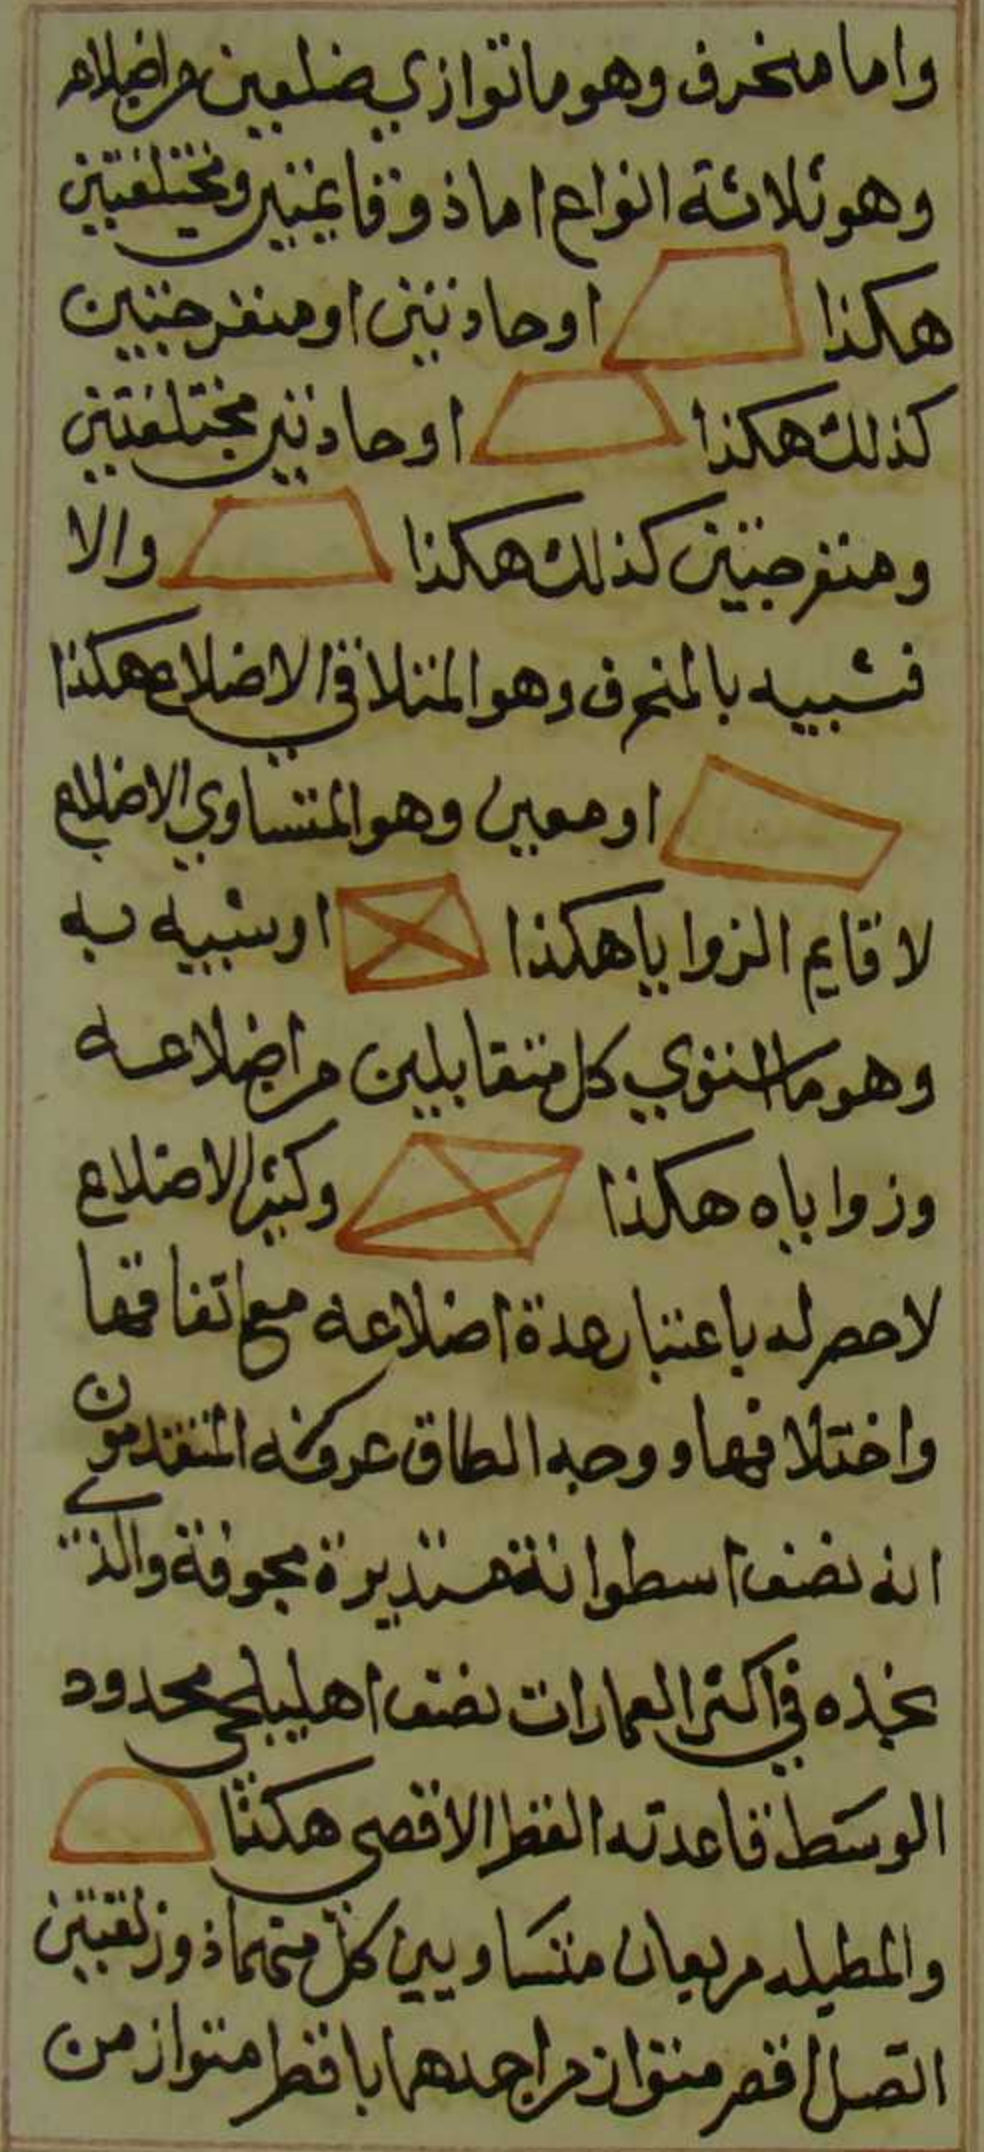 واما منحرف وهو ما توازي ضلعين من اضلاعه
وهو ثلاثة انواع اما ذو قايمتين ومختلفتين
هكذا او حادتين او منفرجتين
كذلك هكذا او حادتين مختلفتين
ومنفرجتين كذلك هكذا والا
فشبيه بالمنحرف وهو المتلاقي الاضلاع هكذا
او معين وهو المتساوي الاضلاع
لا قايم الزوايا هكذا او شبيه به
وهو ما استوي كل متقابلين من اضلاعه
وزواياه هكذا وكثير الاضلاع
لا حصر له باعتبار عدة اضلاعه مع اتفاقها
واختلافها ووجه الطاق عرفه المتقدمون
انه نصف اسطوانة مستديرة مجوفة والذي
نجده في اكثر العمارات نصف اهليلجي محدود
الوسط قاعدته القطر الاقصي هكذا
والمطبله مربعان متساويين كل منهما ذو زنقتين
اتصل اقصر متواز من احدهما باقصر متواز من